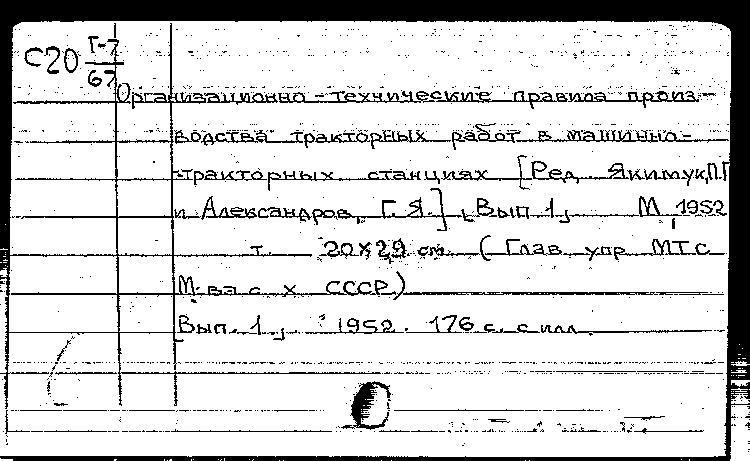 С20 Г-7
67
Организационно-технические правила произ-
водства тракторных работ в машинно-
тракторных станциях [Ред. Якимук П.Г
и Александров, Г. Я.] [Вып 1] М, 1952
т. 20x29 см. (Глав упр МТС
М-ва с х СССР)
[Вып. 1.] 1952. 176 с. с илл.
6